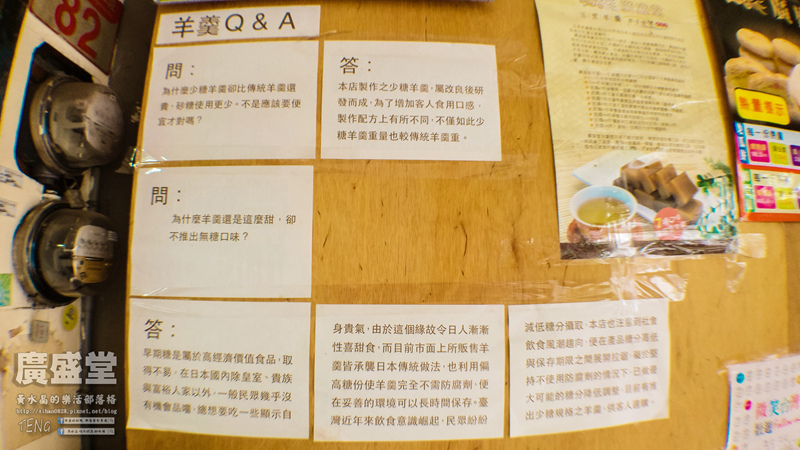 82
羊羹Q&A
問：
為什麼少糖羊羹卻比傳統羊羹還
貴，砂糖使用更少。不是應該要便
宜才對嗎？
答：
本店製作之少糖羊羹，屬改良後研
發而成，為了增加客人食用口感，
製作配方上有所不同，不僅如此少
糖羊羹重量也較傳統羊羹重。
問：
為什麼羊羹還是這麼甜，卻
不推出無糖口味？
答：
早期糖是屬於高經濟價值食品，取
得不易，在日本國內除皇室、貴族
與富裕人家以外，一般民眾幾乎沒
有機會品嚐，應想要吃一些顯示自
身貴氣，由於這個緣故令日人漸漸
性喜甜食，而目前市面上所販售羊
羹皆承襲日本傳統做法，也利用偏
高糖份使羊羹完全不需防腐劑，便
在妥善的環境可以長時間保存。臺
灣近年來飲食意識崛起，民眾紛紛
減低糖分攝取，本店也注意到社會
飲食風潮趨向，便在產品糖分高低
與保存期限之間展開拉鋸，毫於堅
持不使用防腐劑的情況下，已做最
大可能的糖分降低調整，目前有推
出少糖規格之羊羹，供客人選購。
熱量標示
廣盛堂
黃水晶的樂活部落格
TENG